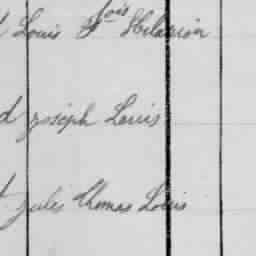 Louis Fois Hilarion
d joseph Louis
t jules thomas Louis